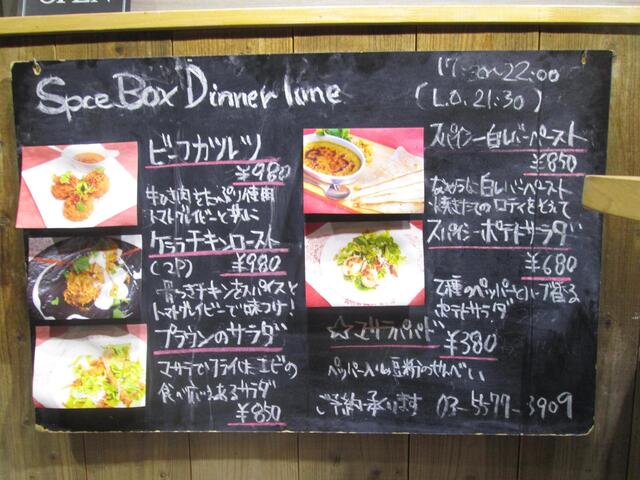 OPEN
Spce Box Dinner Time
17:30～22:00
(L.O. 21:30)
ビーフカツレツ
¥980
牛ひき肉をたっぷり使用
トマトグレイビーと共に
ケララチキンロースト
(2P) ¥980
骨つきチキンをスパイスと
トマトグレイビーで味つけ!
プラウンのサラダ
マサラでフライしたエビの
食べ応えあるサラダ
¥850
スパイシー白レバーペースト
¥850
なめらかな白レバーペースト
焼きたてのロティをそえて
スパイシーポテトサラダ
¥680
2種のペッパーとハーブ香る
ポテトサラダ
☆マサラパパド
¥380
ペッパー入りの豆粉のせんべい
ご予約承ります 03-5577-3909